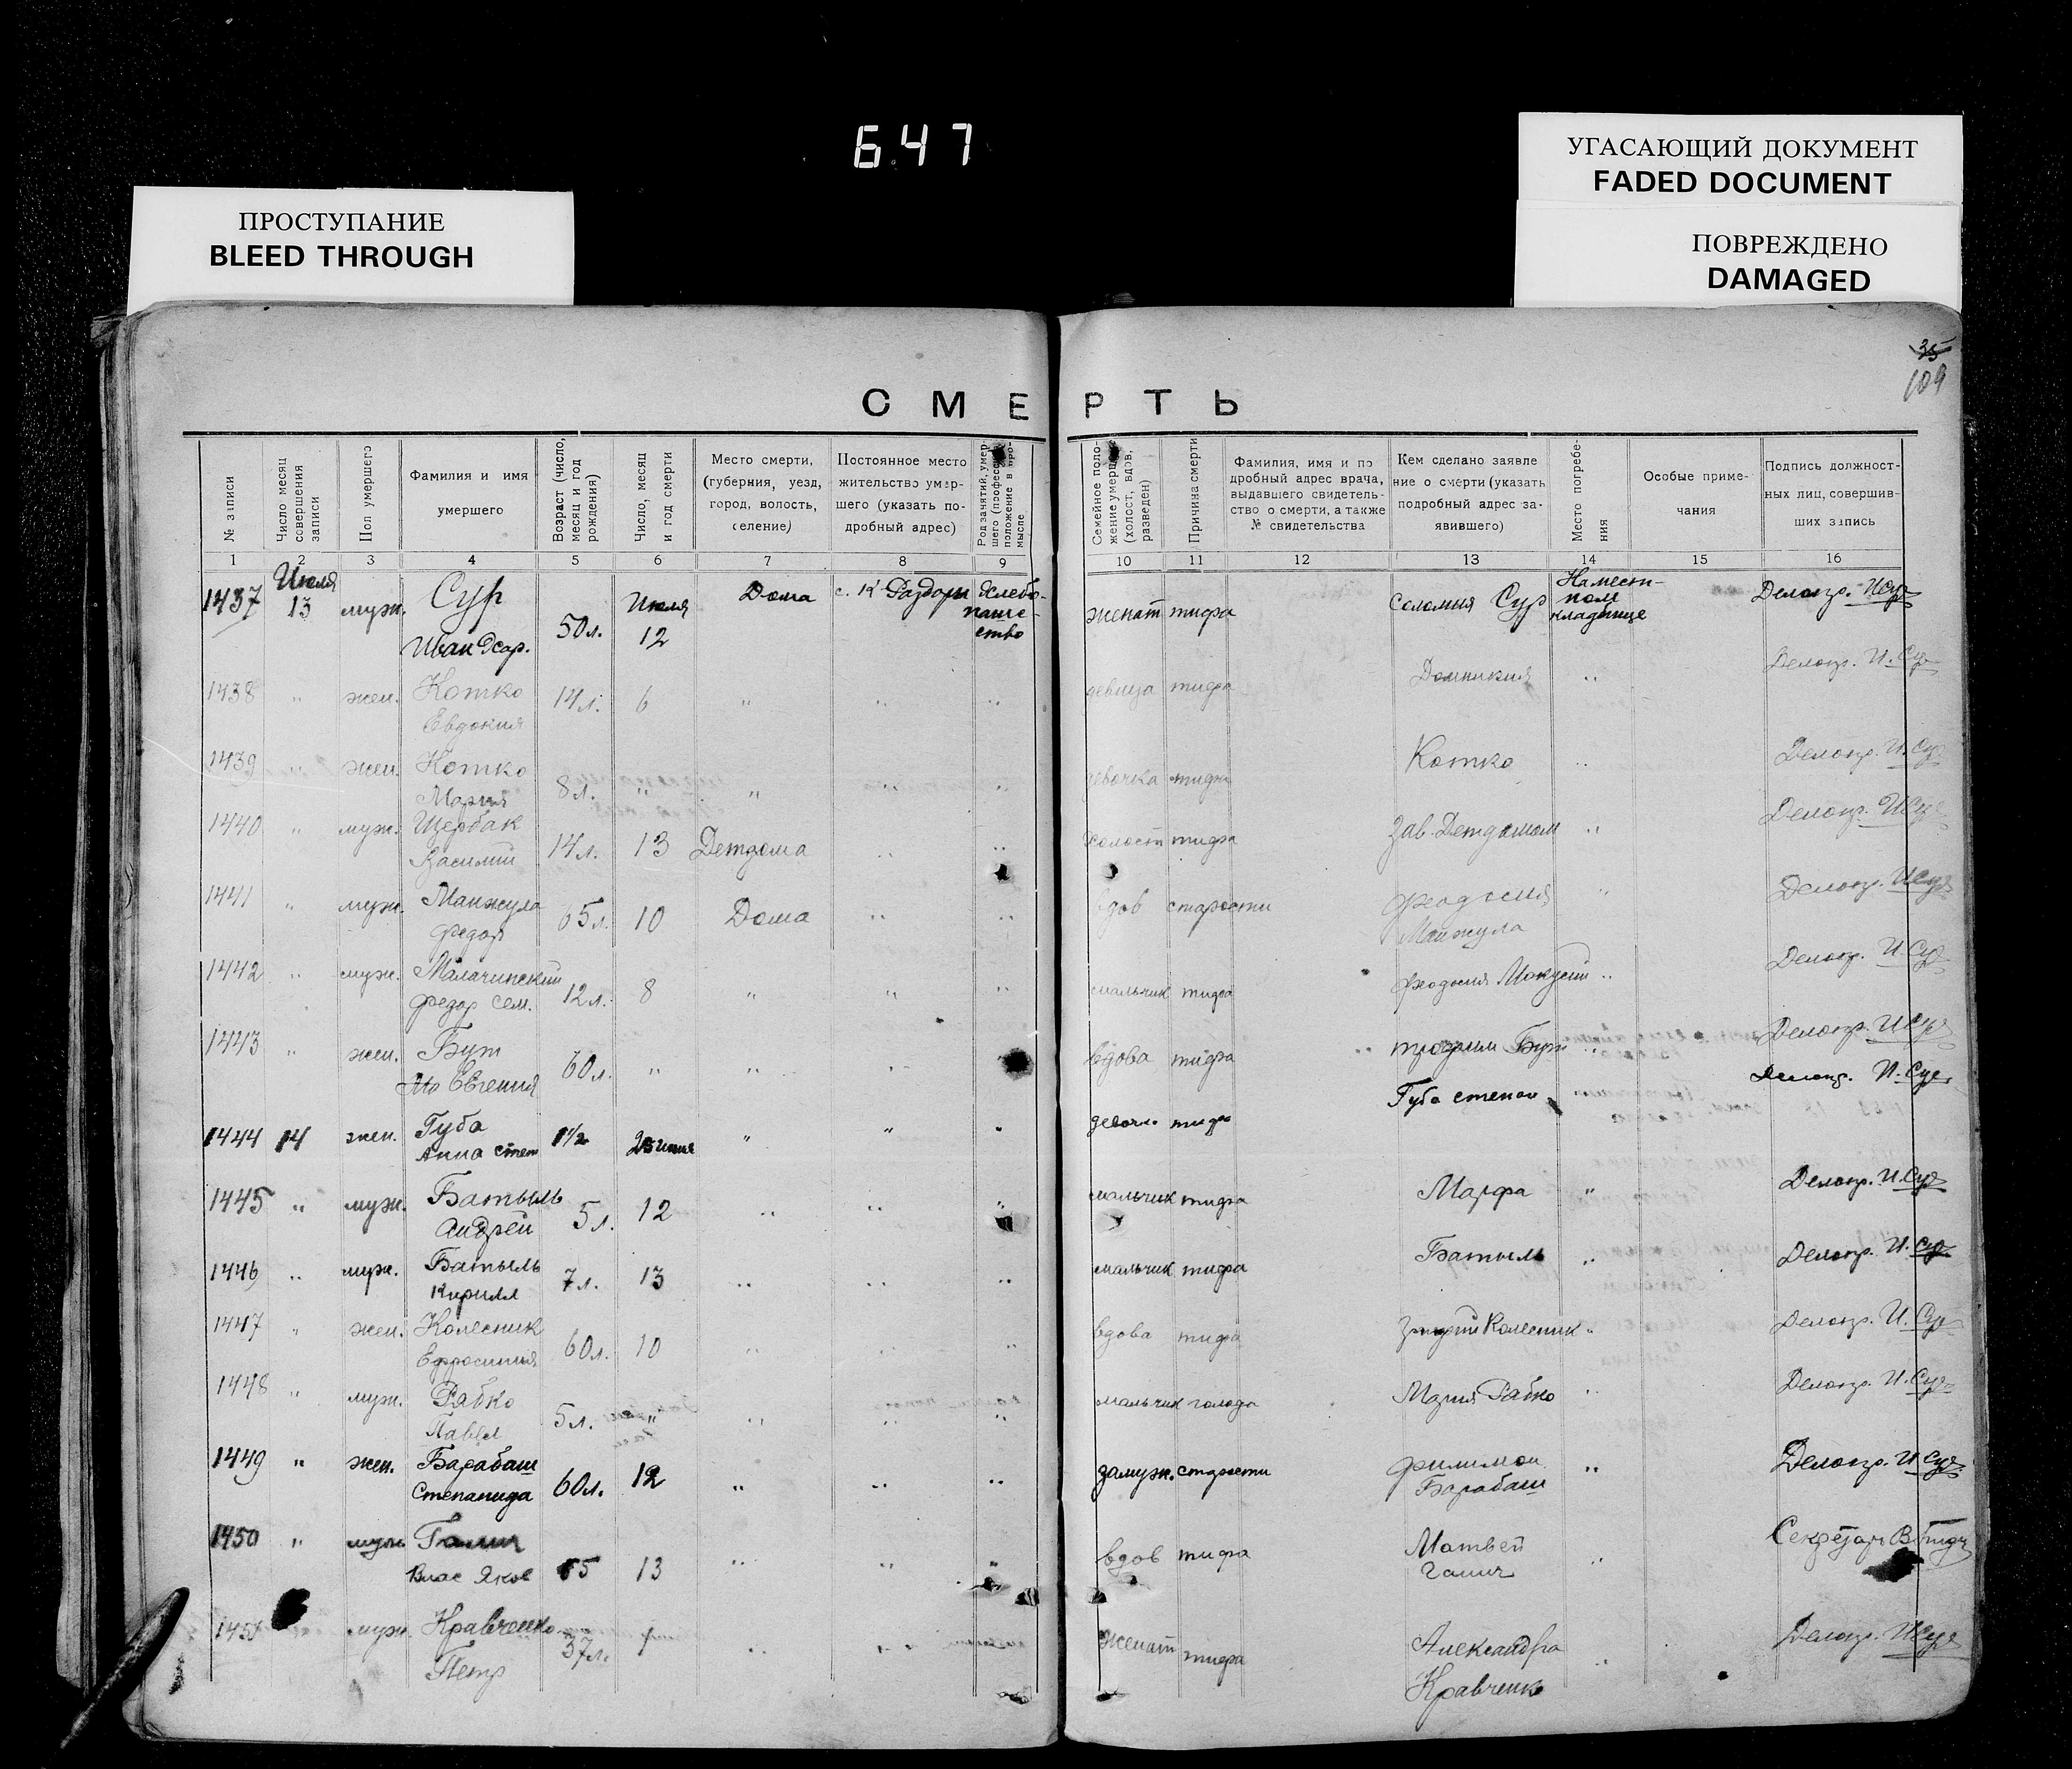 647
УГАСАЮЩИЙ ДОКУМЕНТ
FADED DOCUMENT
ПРОСТУПАНИЕ
BLEED THROUGH
ПОВРЕЖДЕНО
DAMAGED
35
109
СМЕРТЬ
№ записи
Число месяц совершения записи
Пол умершего
Фамилия и имя умершего
Возраст (число, месяц и год рождения)
Число, месяц и год смерти
Место смерти, (губерния, уезд, город, волость, селение)
Постоянное место жительство умершего (указать подробный адрес)
Род занятий, умершего (професс положение в промысле
Семейное положение умерше (холост, вдов, разведен)
Причина смерти
Фамилия, имя и по дробный адрес врача, выдавшего свидетельство о смерти, а также № свидетельства
Кем сделано заявле ние о смерти (указать подробный адрес заявившего)
Место погребения
Особые примечания
Подпись должностных лиц, совершивших запись
1 2 3 4 5 6 7 8 9 10 11 12 13 14 15 16
1437 Июля 13 муж. Сур Иван 50л. Июля 12 Дома с. К Раздоры Хлебопашество женат тифа Соломия Сур кладбище Делопр. И Сур
1438 " жен. Котко Евдокия 14л. 6 " " " девица тифа Домникия " Делопр. И. Сур
1439 " жен. Котко Мария 8л. " " " " девочка тифа Котко " Делопр. И. Сур
1440 " муж. Щербак Василий 14л. 13 Детдома " " холост тифа Зав. Детдомом " Делопр. И Сур
1441 " муж. Манжула Федор 65л. 10 Дома " " вдов старости Феодосия Манжула " Делопр. И Сур
1442 " муж. Малачинский Федор Сем. 12л. 8 " " " мальчик тифа Феодосия " Делопр. И Сур
1443 " жен. Бут 60л. " " " " вдова тифа Трофим Бут " Делопр. И Сур
1444 14 жен. Губа Анна Степ 1½ " " " девочк. тифа Губа Степан Делопр. И. Сур
1445 " муж. Батыль Андрей 5л. 12 " " " мальчик тифа Марфа " Делопр. И. Сур
1446 " муж. Батыль Кирилл 7л. 13 " " " мальчик тифа Батыль " Делопр. И. Сур
1447 " жен. Колесник Ефросиния 60л. 10 " " " вдова тифа Колесник " Делопр. И. Сур
1448 " муж. Рябко Павел 5л. " " " " мальчик голода Мария Рябко " Делопр. И. Сур
1449 " жен. Барабаш Степанида 60л. 12 " " " замуж. старости Филимон Барабаш " Делопр. И Сур
1450 " муж Галич Влас Яков 13 " " " вдов тифа Матвей Галич " Секретарь
1451 муж. Кравченко Петр 37л. " " женат тифа Александра Кравченко " Делопр. И Сур